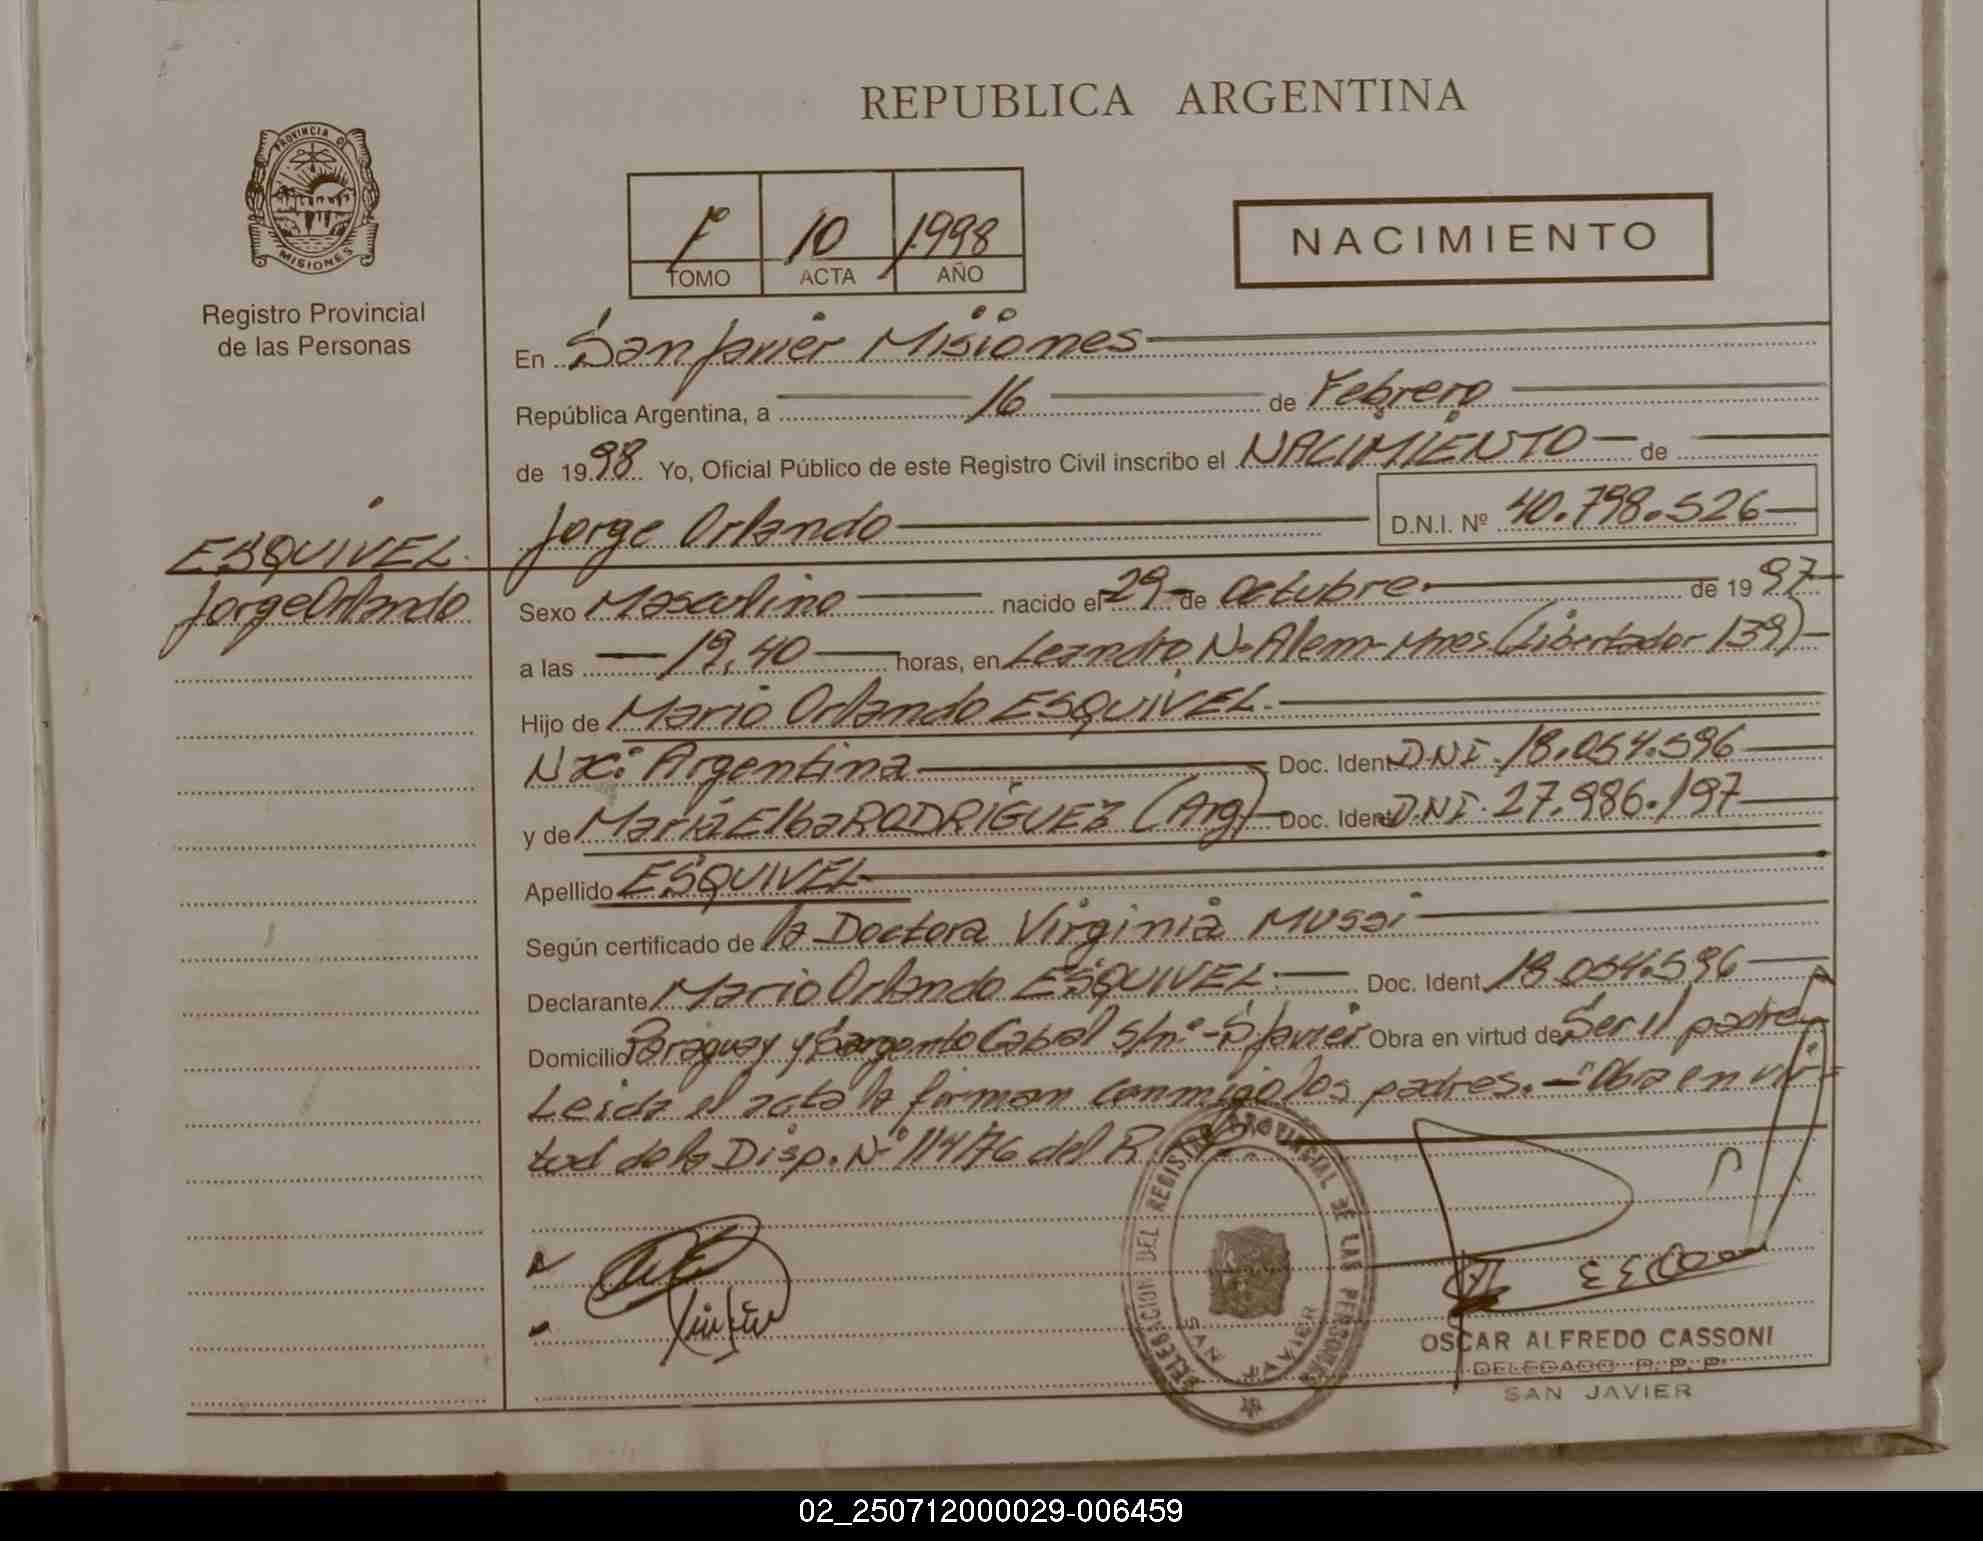 REPUBLICA ARGENTINA
PROVINCIA DE
MISIONES
Registro Provincial
de las Personas
1º 10 1998
TOMO ACTA AÑO
NACIMIENTO
En San Javier Misiones
República Argentina, a 16 de Febrero
de 1998 Yo, Oficial Público de este Registro Civil inscribo el NACIMIENTO de
Jorge Orlando D.N.I. Nº 40.798.526
ESQUIVEL
Jorge Orlando
Sexo Masculino nacido el 29 de Octubre de 1997
a las 19,40 horas, en Leandro N. Alem-Mnes (Libertador 139)
Hijo de Mario Orlando ESQUIVEL
Nac: Argentina Doc. Ident. DNI. 18.054.596
y de María Elba RODRIGUEZ (Arg) Doc. Ident. DNI. 27.986.197
Apellido ESQUIVEL
Según certificado de la Doctora Virginia Mussi
Declarante Mario Orlando ESQUIVEL. Doc. Ident. 18.054.596
Domicilio Paraguay y Sargento Cabral S/nº - S. Javier Obra en virtud de Ser el padre
Leida el acta la firman conmigo los padres. - Obra en vir-
tud de la Disp. Nº 114/76 del R.
DELEGACION DEL REGISTRO PROVINCIAL DE LAS PERSONAS
SAN JAVIER
OSCAR ALFREDO CASSONI
DELEGADO R. P. P.
SAN JAVIER
02_250712000029-006459